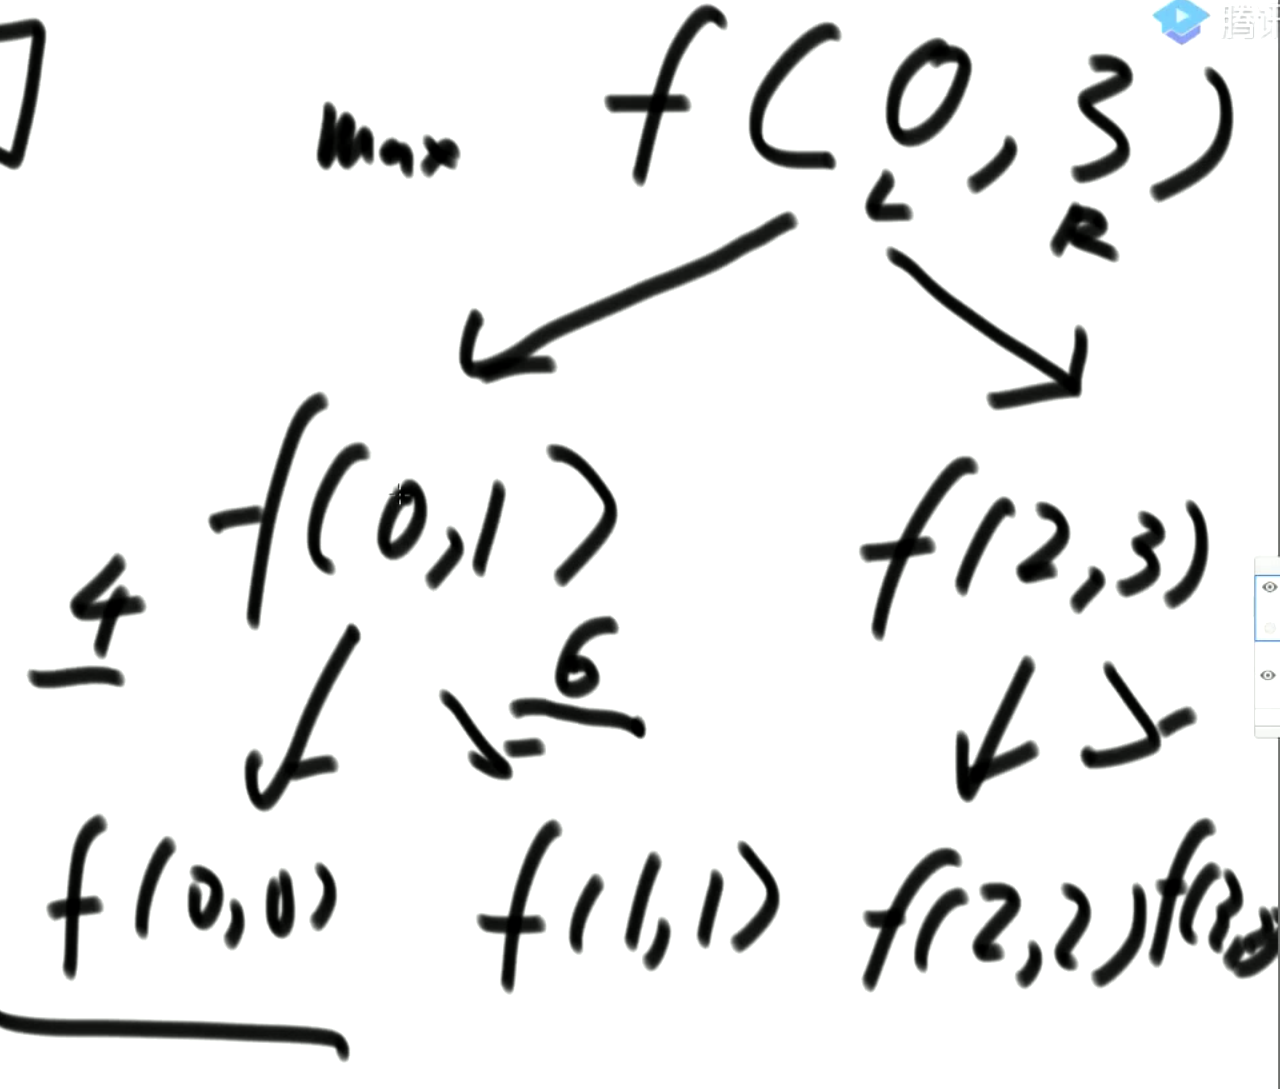 max f(0,3)
L R
f(0,1) f(2,3)
4 6
f(0,0) f(1,1) f(2,2)